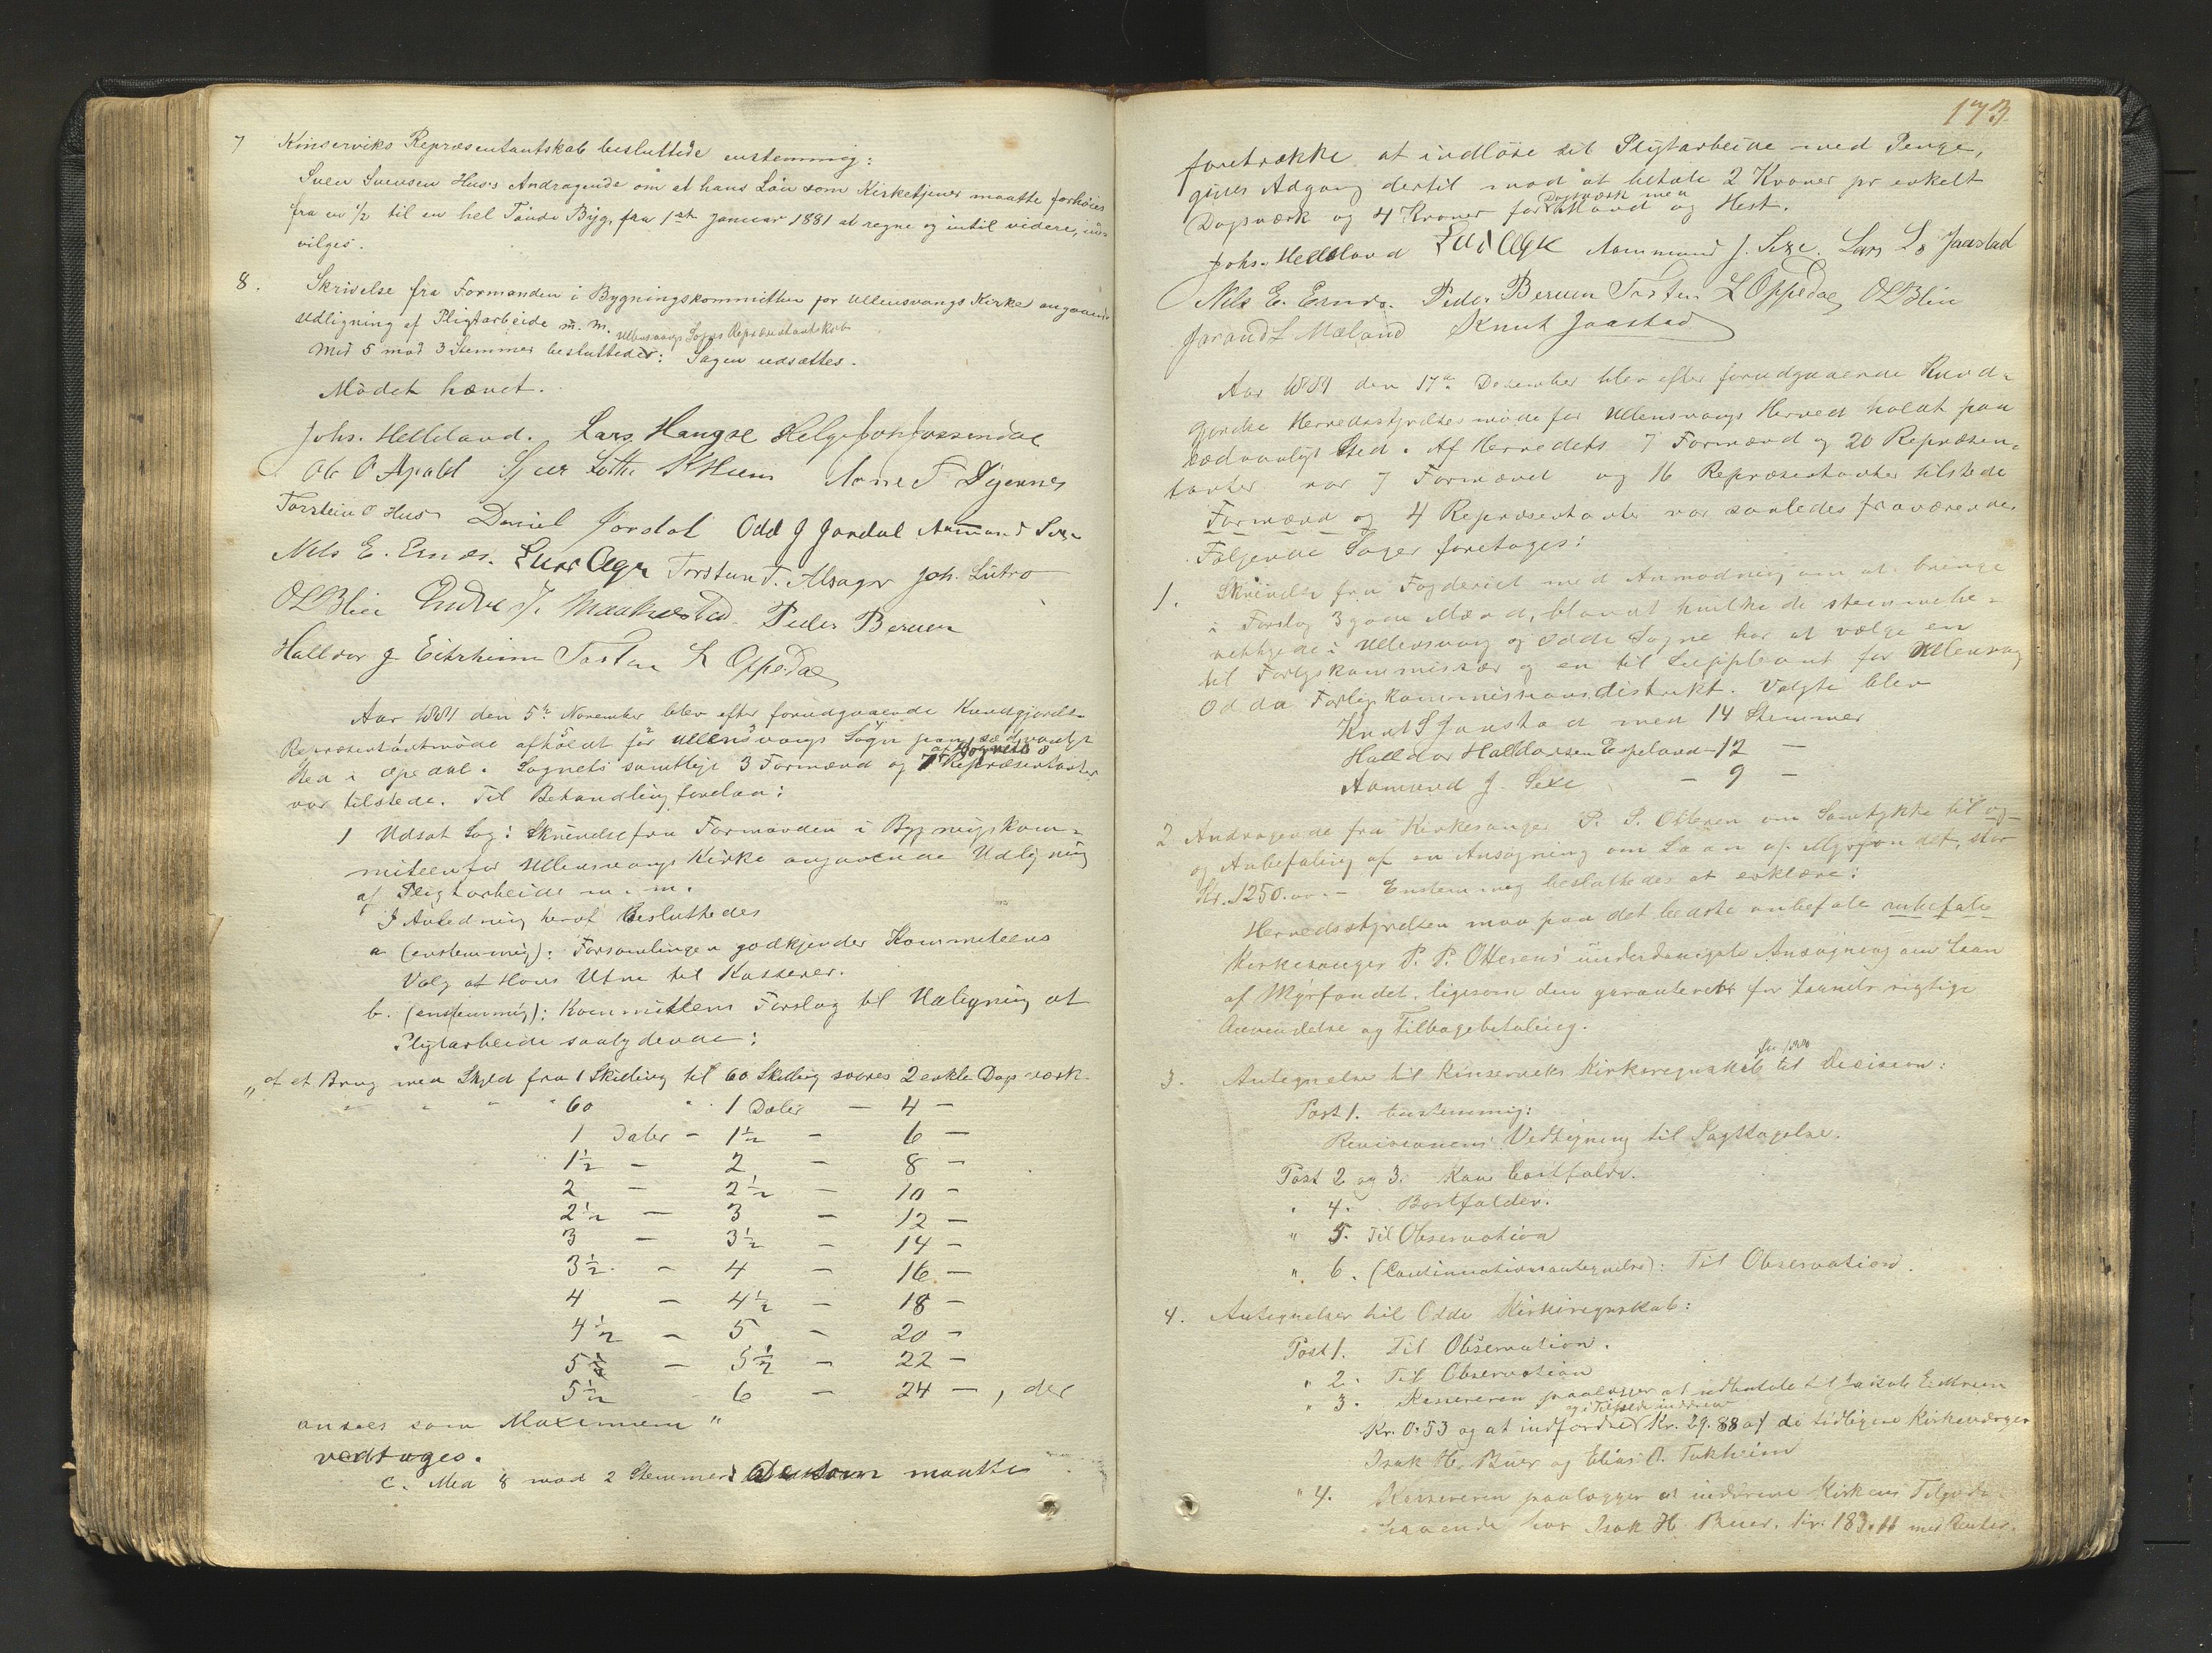 7 Kinserviks Repræsentantskab besluttede enstemmig:
Sven Svensen Hus's Andragende om at hans Løn som Kirketjener maatte forhøies
fra en 1/2 til en hel Tønde Byg, fra 1ste Januar 1881 at regne og indtil videre, ind-
vilges.
8. Skrivelse fra Formanden i Bygningskommitteen for Ullensvangs Kirke angaaende
Udligning af Pligtarbeide m. m.
Ullensvangs Sogns Repræsentantskab
Med 5 mod 3 Stemmer besluttedes: Sagen udsættes.
Mødet hævet.
Johs. Helleland. Lars Haugse Helge Jossendal
Ole O Apald Sjur Lothe K Hus Arne T Digernes
Torstein O Hus Daniel Jordal Odd J Jordal Aamund Sexe
Nels E. Ernæs. Lars Aga Torstein T. Alsager Joh. Lutro
O L Blie Endre J. Maakestad. Peder Berven
Halldor J Eitrheim Tosten L Oppedal
Aar 1881 den 5te November blev efter forudgaaende Kundgjørelse
Repræsentantmøde afholdt for Ullensvangs Sogn paa sædvanligt
Sted i Opedal. Sognets samtlige 3 Formænd og 7 af Sognets 8 Repræsentanter
var tilstede. Til Behandling forelaa:
1 Udsat Sag: Skrivelse fra Formanden i Bygningskom-
miteen for Ullensvangs Kirke angaaende Udligning
af Pligtarbeide m. m.
I Anledning heraf besluttedes
a (enstemmig): Forsamlingen godkjender Kommiteens
Valg af Hans Utne til Kasserer.
b. (enstemmig): Kommitteens Forslag til Udligning af
Pligtarbeide saalydende:
„af et Brug med Skyld fra 1 Skilling til 60 Skilling svares 2 enkle Dagsværk.
" " " " 60 " 1 Daler – 4 –
1 Daler – 1½ – 6 –
1½ – 2 – 8 –
2 – 2½ – 10 –
2½ – 3 – 12 –
3 – 3½ – 14 –
3½ – 4 – 16 –
4 – 4½ – 18 –
4½ – 5 – 20 –
5 – 5½ – 22 –
5½ 6 – 24 – , der
ansees som Maximum"
vedtages.
c. Med 8 mod 2 Stemmer: Dersom maatte
173.
foretrække at indløse sit Pligtarbeide med Penge,
gives Adgang dertil mod at betale 2 Kroner pr enkelt
Dagsværk og 4 Kroner for Dagsværk med Mand og Hest.
Johs. Helleland Lars Aga Aammund J. Sexe. Lars L. Jaastad
Nils E. Ernæs. Peder Berven Tosten L Oppedal O L Blie
Jorand L Mæland Knut Jaastad
Aar 1881 den 17de Dezember blev efter forudgaaende Kund-
gjørelse Herredsstyrelsesmøde for Ullensvangs Herred holdt paa
sædvanligt Sted. Af Herredets 7 Formænd og 20 Repræsen-
tanter var 7 Formænd og 16 Repræsentanter tilstede
Formænd og 4 Repræsentanter var saaledes fraværende
Følgende Sager foretoges:
1. Skrivelse fra Fogderiet med Anmodning om at bringe
i Forslag 3 gode Mænd, blandt hvilke de stemmebe-
rettigede i Ullensvang og Odde Sogne har at vælge en
til Forligskommissær og en til Suppleant for Ullensvang
Odda Forligskommissionsdistrikt. Valgte blev
Knut S Jaastad med 14 Stemmer
Halldor Halldorsen Espeland – 12 –
Aamund J. Sexe – 9 –
2 Andragende fra Kirkesanger P. P. Ottesen om Samtykke til og
og Anbefaling af en Ansøgning om Laan af Myrfondet, stor
Kr. 1250.00. – Enstemmig besluttedes at erklære:
Herredsstyrelsen maa paa det bedste anbefale anbefale
Kirkesanger P. P. Ottesens underdanigste Ansøgning om Laan
af Myrfondet, ligesom den garanterer for Laanets rigtige
Anvendelse og Tilbagebetaling.
3. Antegnelse til Kinserviks Kirkeregnskab for 1880 til Decision:
Post 1. Enstemmig:
Revisionens Vedtegning til Iagttagelse.
Post 2 og 3. Kan bortfalde.
" 4. Bortfalder.
" 5. Til Observation
" 6. (Continuationsantegnelse): Til Observation.
4. Antegnelser til Odde Kirkeregnskab:
Post 1. Til Observation.
" 2. Til Observation
" 3. Kassereren paalægges at udbetale til Jakob Eidnæs
Kr. 0.53 og at indfordre og i Tilfælde inddrive Kr. 29.88 af de tidligere Kirkeværger
Isak H. Buer og Elias O. Tokheim
" 4. Kassereren paalægges at inddrive Kirkens Tilgode-
havende hos Isak H. Buer, Kr. 183.11 med Renter.